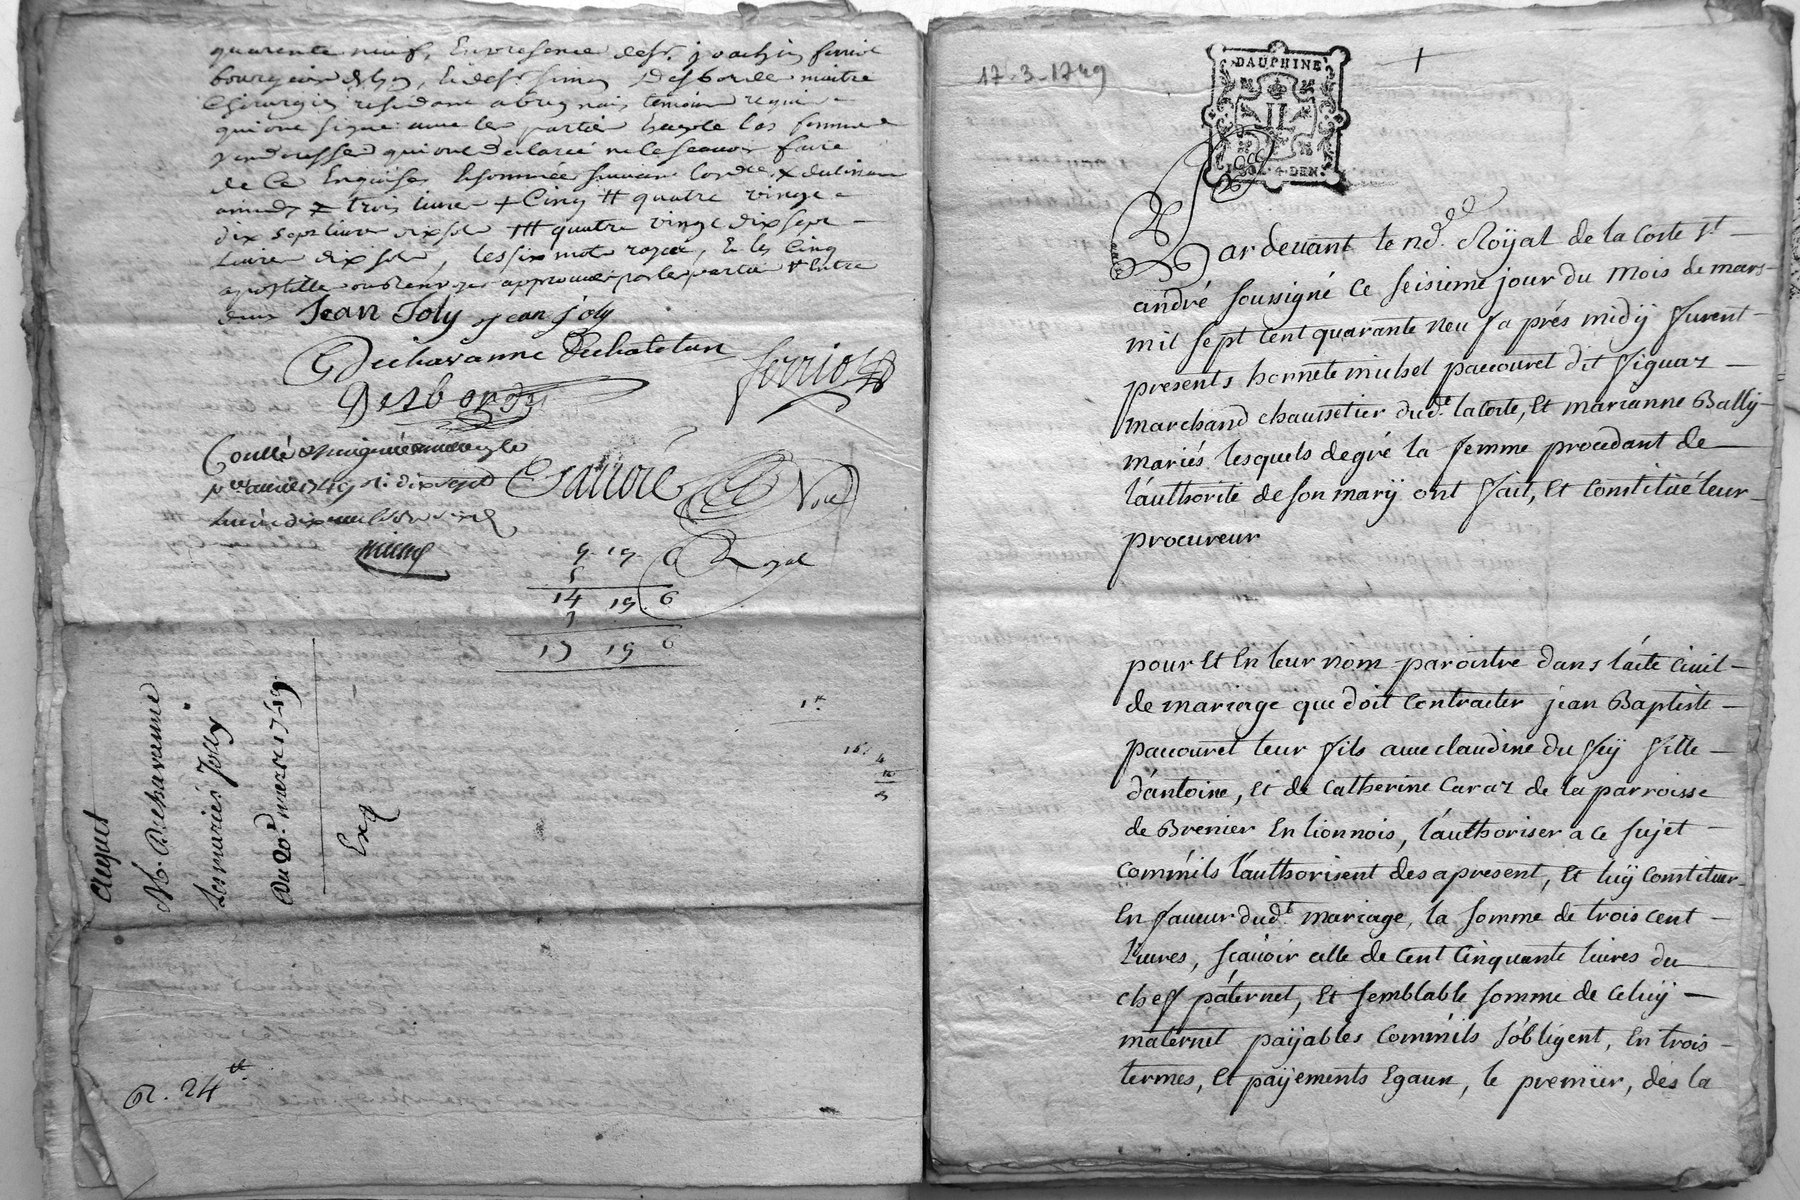 quarante neuf, En presence de sr. joachin ferriol
bourgeois de lyon, Et de sr simon Desborde maitre
Chirurgien residant a brignais temoins requis
qui ont signé avec les parties Excepté les femmes
venderesses qui ont declaré ne le scavoir faire
de ce Enquises
trois livres + Cinq ₶ quatre vingt
dix sept livres dix sols ₶ quatre vingt dix sept
livres dix sols, les six mots rayés, Et les Cinq
apostille approuvés par les parties
Jean Joly jean joly
Duchavanne Duchatelan ferriol
Desbordes
Coullé
1749 dix sept
Nore
Royal
9 19 6
5
14 19 6
3
17 19 6
1₶
4
Acquet
M. Duchavanne
Les mariés Jolly
Du 20e. mars 1749
Exp
R. 24
17-3-1749
DAUPHINÉ
1. SOL. 4. DEN.
Par devant le nre. Royal de la Coste St
andré soussigné ce seisieme jour du mois de mars
mil sept cent quarante neuf aprés midÿ furent
presents honnete michel paccouret dit figuaz
marchand chaussetier dud. la Coste, Et marianne Bally
mariés lesquels de gré la femme procedant de
l'authorité de son marÿ ont fait, Et Constitué leur
procureur
pour Et En leur nom paroistre dans l'acte Civil
de mariage que doit Contracter jean Baptiste
paccouret leur fils avec claudine du feÿ fille
d'antoine, et de Catherine Caraz de la parroisse
de Brenier En lionnois, l'authoriser a ce sujet
Comm'ils l'authorisent des a present, Et luÿ Constituer
En faveur dud.t mariage, la somme de trois cent
livres, scavoir celle de Cent Cinquante livres du
cheff paternel, Et semblable somme de Celuÿ
maternel païjables Comm'ils s'obligent, En trois
termes, Et païjements Egaux, le premier, dès la